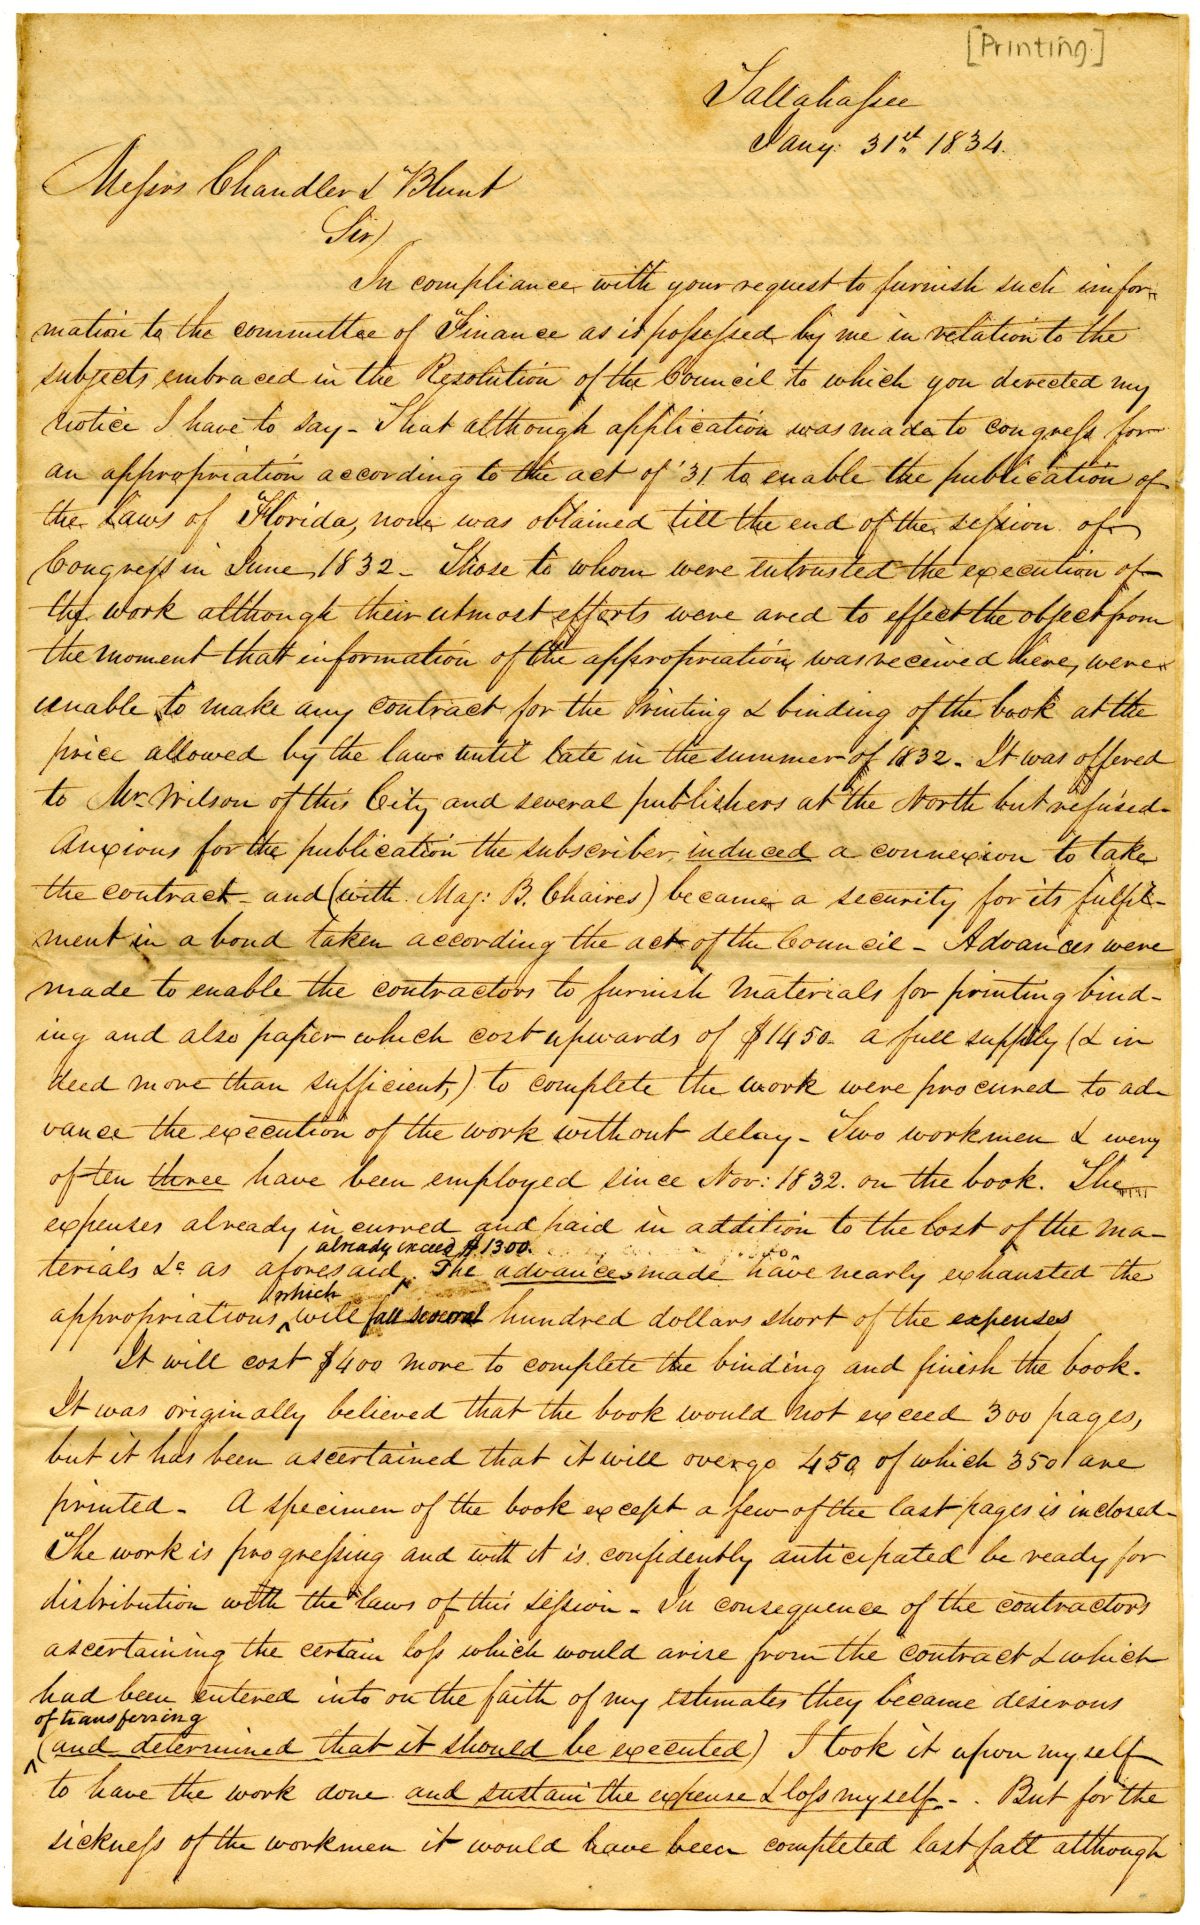 [Printing.]
Tallahassee
Jany. 31st 1834.
Messrs Chandler & Blunt
Sir)
In compliance with your request to furnish such infor-
mation to the committee of Finance as is possessed by me in relation to the
subjects embraced in the Resolution of the Council to which you directed my
notice I have to say - That although application was made to congress for
an appropriation according to the act of '31 to enable the publication of
the Laws of Florida, none was obtained till the end of the session of
Congress in June, 1832 - Those to whom were entrusted the execution of
the work although their utmost efforts were used to effect the object from
the moment that information of the appropriation was received here, were
unable to make any contract for the Printing & binding of the book at the
price allowed by the law until late in the summer of 1832. It was offered
to Mr. Wilson of this City and several publishers at the North but refused -
Anxious for the publication the subscriber, induced a connexion to take
the contract - and (with Maj: B. Chaires) became a security for its fulfil-
ment in a bond taken according the act of the Council - Advances were
made to enable the contractors to furnish materials for printing bind-
ing and also paper which cost upwards of $1450. a full supply (& in
deed more than sufficient,) to complete the work were procured to ad-
vance the execution of the work without delay - Two workmen & very
often three have been employed since Nov: 1832. on the book. The
expenses already incurred and paid in addition to the cost of the ma-
already exceed $1300.
terials &c as aforesaid. The advances made have nearly exhausted the
which
appropriations, will fall several hundred dollars short of the expenses
It will cost $400 more to complete the binding and finish the book.
It was originally believed that the book would not exceed 300 pages,
but it has been ascertained that it will overgo 450, of which 350 are
printed - A specimen of the book except a few of the last pages is inclosed -
The work is progressing and will it is confidently anticipated be ready for
distribution with the laws of this session - In consequence of the contractors
ascertaining the certain loss which would arise from the contract & which
had been entered into on the faith of my estimates they became desirous
of transferring
(and determined that it should be executed) I took it upon myself
to have the work done and sustain the expense & loss myself -. But for the
sickness of the workmen it would have been completed last fall although